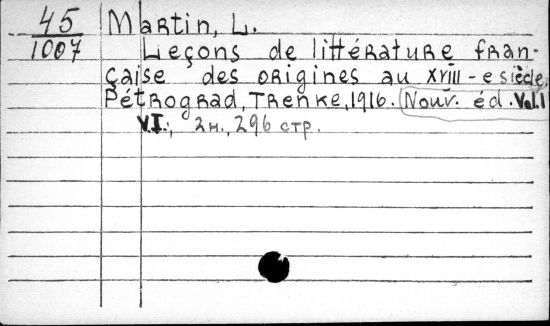 45
1007
Martin, L.
Leçons de littérature fran-
çaise des origines au XVIII-e siècle,
Pétrograd, Trenke, 1916. Nouv. éd. Vol.1
VI; 2н., 296 стр.